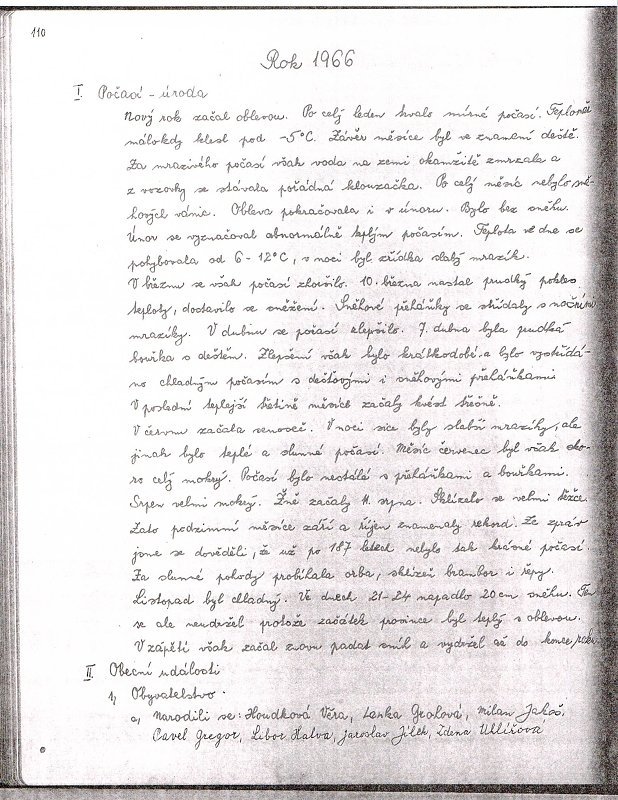 110
Rok 1966
I. Počasí - úroda
Nový rok začal oblevou. Po celý leden trvalo mírné počasí. Teploměr
málokdy klesl pod -5°C. Závěr měsíce byl ve znamení deště.
Za mrazivého počasí však voda na zemi okamžitě zmrzala a
z vozovky se stávala pořádná klouzačka. Po celý měsíc nebylo sně-
hových vánic. Obleva pokračovala i v únoru. Bylo bez sněhu.
Únor se vyznačoval abnormálně teplým počasím. Teplota ve dne se
pohybovala od 6-12°C, v noci byl zřídka slabý mrazík.
V březnu se však počasí zhoršilo. 10. března nastal prudký pokles
teploty, dostavilo se sněžení. Sněhové přeháňky se střídaly s nočními
mrazíky. V dubnu se počasí zlepšilo. 7. dubna byla prudká
bouřka s deštěm. Zlepšení však bylo krátkodobé a bylo vystřídá-
no chladným počasím s dešťovými i sněhovými přeháňkami
V poslední teplejší třetině měsíce začaly kvést třešně.
V červnu začala senoseč. V noci sice byly slabší mrazíky, ale
jinak bylo teplé a slunné počasí. Měsíc červenec byl však sko-
ro celý mokrý. Počasí bylo nestálé s přeháňkami a bouřkami.
Srpen velmi mokrý. Žně začaly 11. srpna. Sklízelo se velmi těžce.
Zato podzimní měsíce září a říjen znamenaly rekord. Ze zpráv
jsme se dověděli, že už po 187 letech nebylo tak krásné počasí.
Za slunné pohody probíhala orba, sklizeň brambor i řepy.
Listopad byl chladný. Ve dnech 21-24 napadlo 20 cm sněhu. Ten
se ale neudržel protože začátek prosince byl teplý s oblevou.
V zápětí však začal znovu padat sníh a vydržel až do konce roku
II. Obecní události
1) Obyvatelstvo.
a) Narodili se: Houdková Věra, Lenka Grolová, Milan Jakeš,
Pavel Gregor, Libor Hatva, Jaroslav Jílek, Zdena Uhlířová